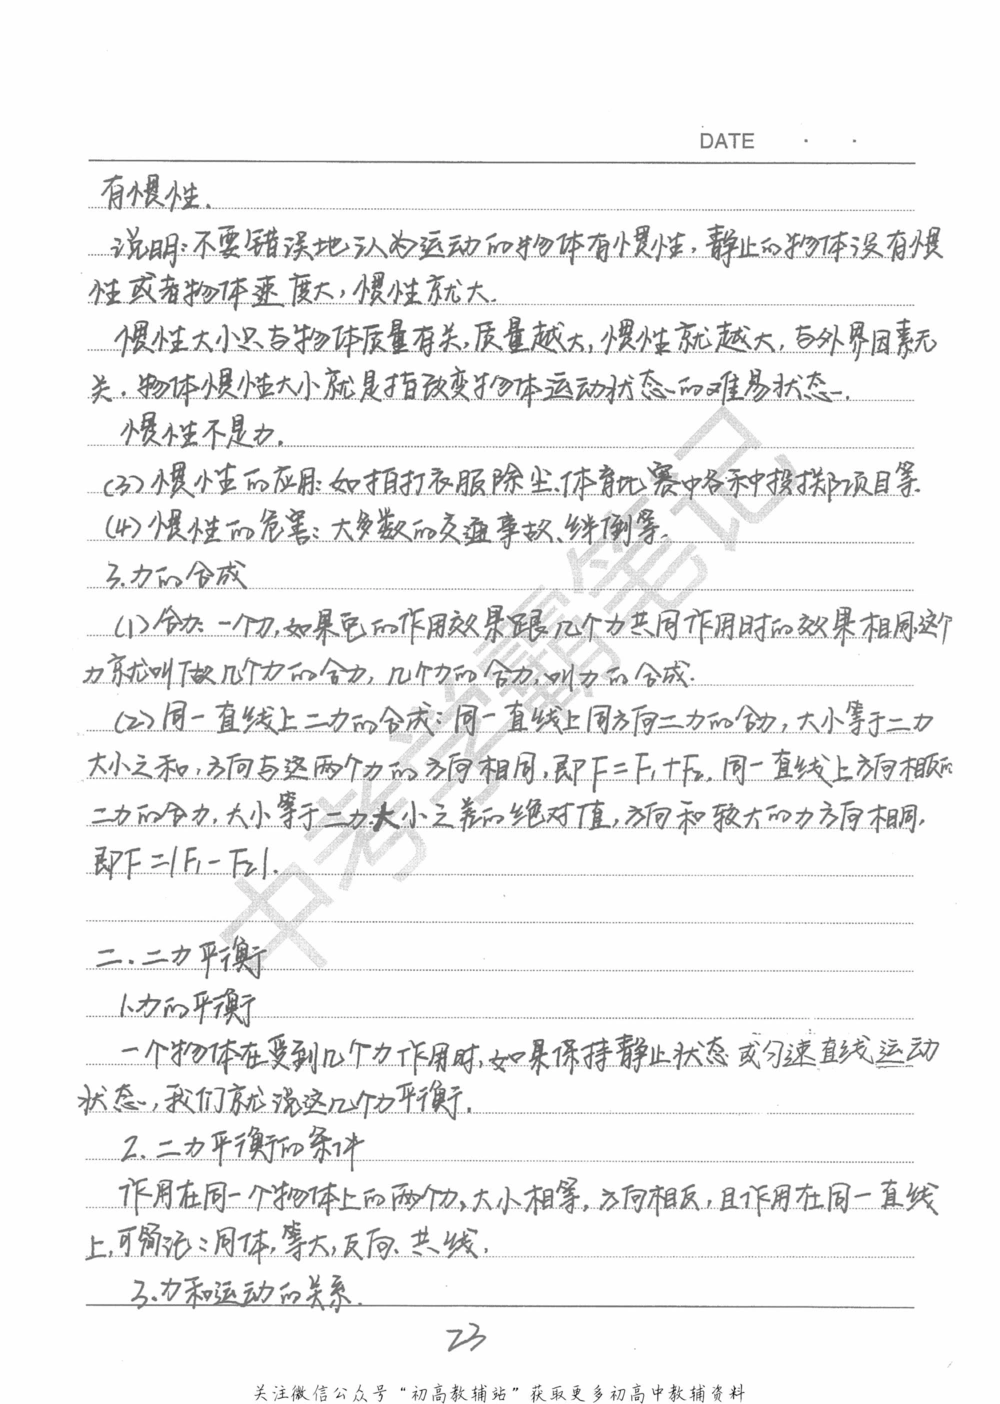 DATE · ·
有惯性.
说明:不要错误地认为运动的物体有惯性,静止的物体没有惯
性或者物体速度大,惯性就大.
惯性大小只与物体质量有关,质量越大,惯性就越大,与外界因素无
关.物体惯性大小就是指改变物体运动状态的难易状态.
惯性不是力.
(3)惯性的应用:如拍打衣服除尘、体育比赛中各种投掷项目等.
(4)惯性的危害:大多数的交通事故、绊倒等.
3.力的合成
(1)合力:一个力,如果它的作用效果跟几个力共同作用时的效果相同,这个
力就叫做几个力的合力,几个力的合力,叫力的合成.
(2)同一直线上二力的合成:同一直线上同方向二力的合力,大小等于二力
大小之和,方向与这两个力的方向相同,即F=F₁+F₂.同一直线上方向相反的
二力的合力,大小等于二力大小之差的绝对值,方向和较大的力方向相同.
即F=|F₁-F₂|.
二.二力平衡
1.力的平衡
一个物体在受到几个力作用时,如果保持静止状态或匀速直线运动
状态,我们就说这几个力平衡.
2.二力平衡的条件
作用在同一个物体上的两个力,大小相等,方向相反,且作用在同一直线
上,可简记:同体,等大,反向、共线.
3.力和运动的关系.
23
关注微信公众号“初高教辅站”获取更多初高中教辅资料
中考学霸笔记